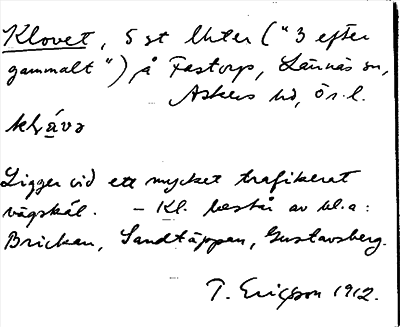 Klovet, 5 st lhter ("3 efter
gammalt") å Fastorp, Lännäs sn,
Askers hd, Ör. l.
klå̱və
Ligger vid ett mycket trafikerat
vägskäl. – Kl. består av bl.a:
Brickan, Sandtäppan, Gustavsberg.
T. Ericsson 1912.